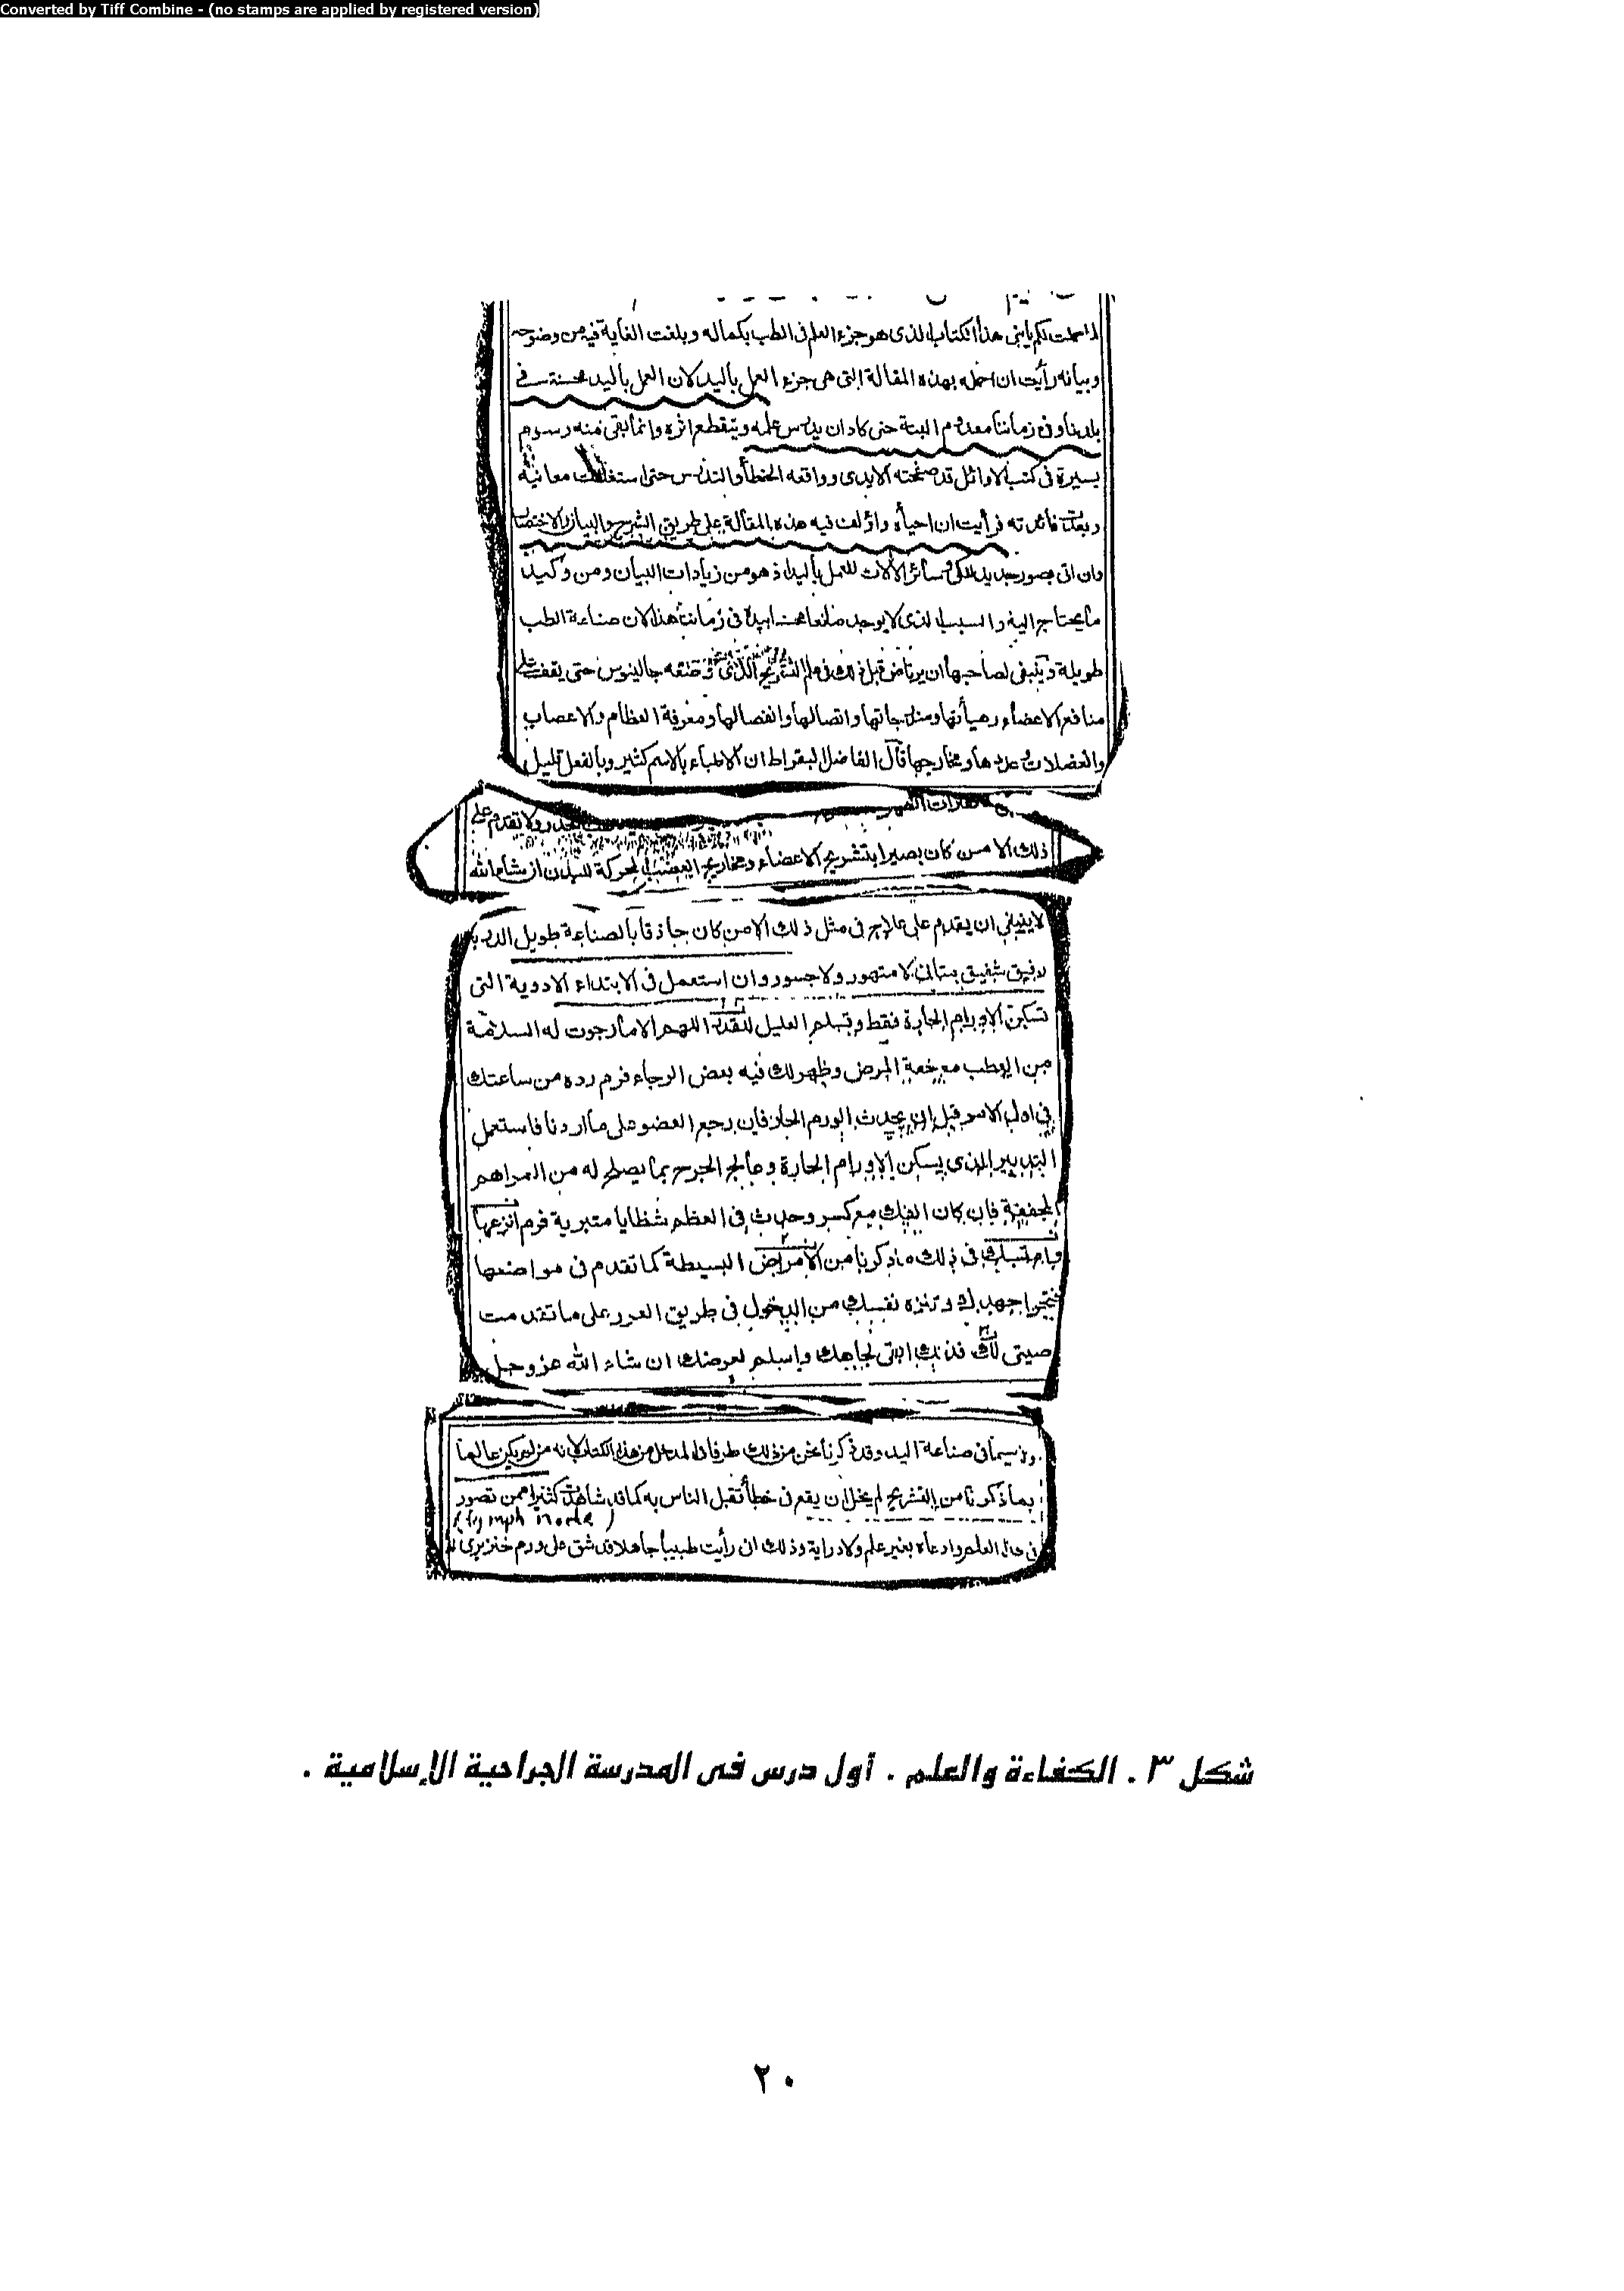 Converted by Tiff Combine - (no stamps are applied by registered version)
لما اكملت لكم يابنى هذا الكتاب الذى هو جزء العلم فى الطب بكماله وبلغت الغاية فيه من وضوحه
وبيانه رأيت ان اكمله بهذه المقالة التى هى جزء العمل باليد لان العمل باليد محسنة فى
بلدنا وفى زماننا معدوم البتة حتى كاد ان يدرس علمه وينقطع اثره وانما بقى منه رسوم
يسيرة فى كتب الاوائل قد صحفته الايدى وواقعه الخطأ والتدس حتى استغلقت معانيه
وبعدت فائدته فرأيت ان احياه واؤلف فيه هذه المقالة على طريق الشرح والبيان والاختصار
وان اتى بصور حديد للكى وسائر الالات للعمل باليد اذ هو من زيادات البيان ومن وكيد
ما يحتاج اليه والسبب الذى لا يوجد صانعا محسنا بيده فى زماننا هذا لان صناعة الطب
طويلة وينبغى لصاحبها ان يرتاض قبل ذلك فى علم التشريح الذى وصفه جالينوس حتى يقف على
منافع الاعضاء وهيأتها ومزاجاتها واتصالها وانفصالها ومعرفة العظام والاعصاب
والعضلات وعددها ومخارجها قال الفاضل ابقراط ان الاطباء بالاسم كثير وبالفعل قليل
فقارات الظهر الحذر ولا يقدم على
ذلك الا من كان بصيرا بتشريح الاعضاء ومخاريج العصب المحركة للبدن ان شاء الله
لا ينبغي ان يقدم على علاج فى مثل ذلك الا من كان حاذقا بالصناعة طويل الدربة
رفيق شفيق متانى لا متهور ولا جسور وان استعمل فى الابتداء الادوية التى
تسكن الاورام الحارة فقط وتسلم العليل للقدر اللهم الا ما رجوت له السلامة
من العطب مع خفة المرض وظهر لك فيه بعض الرجاء فرم رده من ساعتك
فى اول الامر قبل ان يحدث الورم الحار فان رجع العضو على ما اردنا فاستعمل
التدبير الذى يسكن الاورام الحارة وعالج الجرح بما يصلح له من المراهم
المجففة فان كان الفك مع كسر وحدث فى العظم شظايا متبرية فرم انزعها
وامتثل فى ذلك ما ذكرنا من الامراض البسيطة كما تقدم فى مواضعها
جهدك وتنزه نفسك من الدخول فى طريق الغرر على ما تقدمت
وصيتى لك فذلك ابقى لجاهك واسلم لعرضك ان شاء الله عز وجل
ولا سيما فى صناعة اليد وقد ذكرنا نحن من ذلك طرفا فى المدخل من هذا الكتاب لانه من لم يكن عالما
بما ذكرنا من التشريح لم يخل ان يقع فى خطأ تقبل الناس به كما قد شاهدت كثيرا ممن تصور
(lymph node)
فى هذا العلم وادعاه بغير علم ولا دراية وذلك ان رأيت طبيبا جاهلا قد شق على ورم خنزيرى
شكل ٣ . الكفاءة والعلم . أول درس فى المدرسة الجراحية الإسلامية .
٢٠